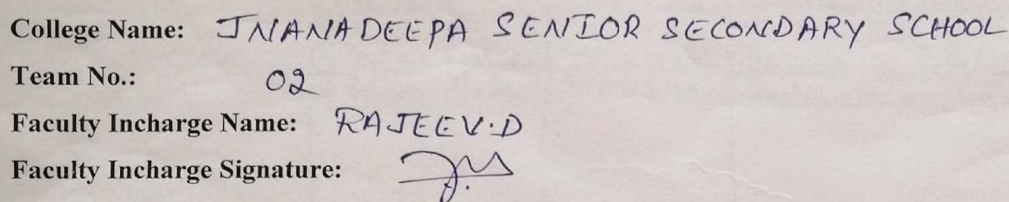 College Name: JNANADEEPA SENIOR SECONDARY SCHOOL
Team No.: 02
Faculty Incharge Name: RAJEEV.D
Faculty Incharge Signature: